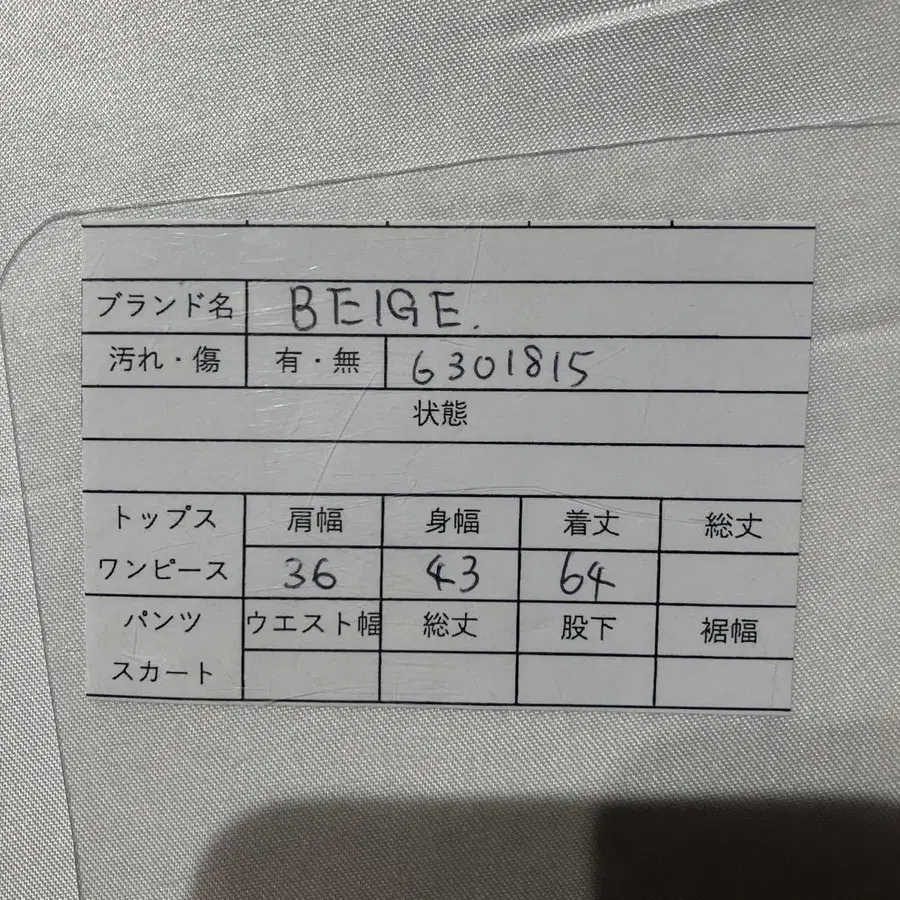 ブランド名 BEIGE.
汚れ・傷 有・無 6301815
状態
トップス 肩幅 身幅 着丈 総丈
ワンピース 36 43 64
パンツ ウエスト幅 総丈 股下 裾幅
スカート